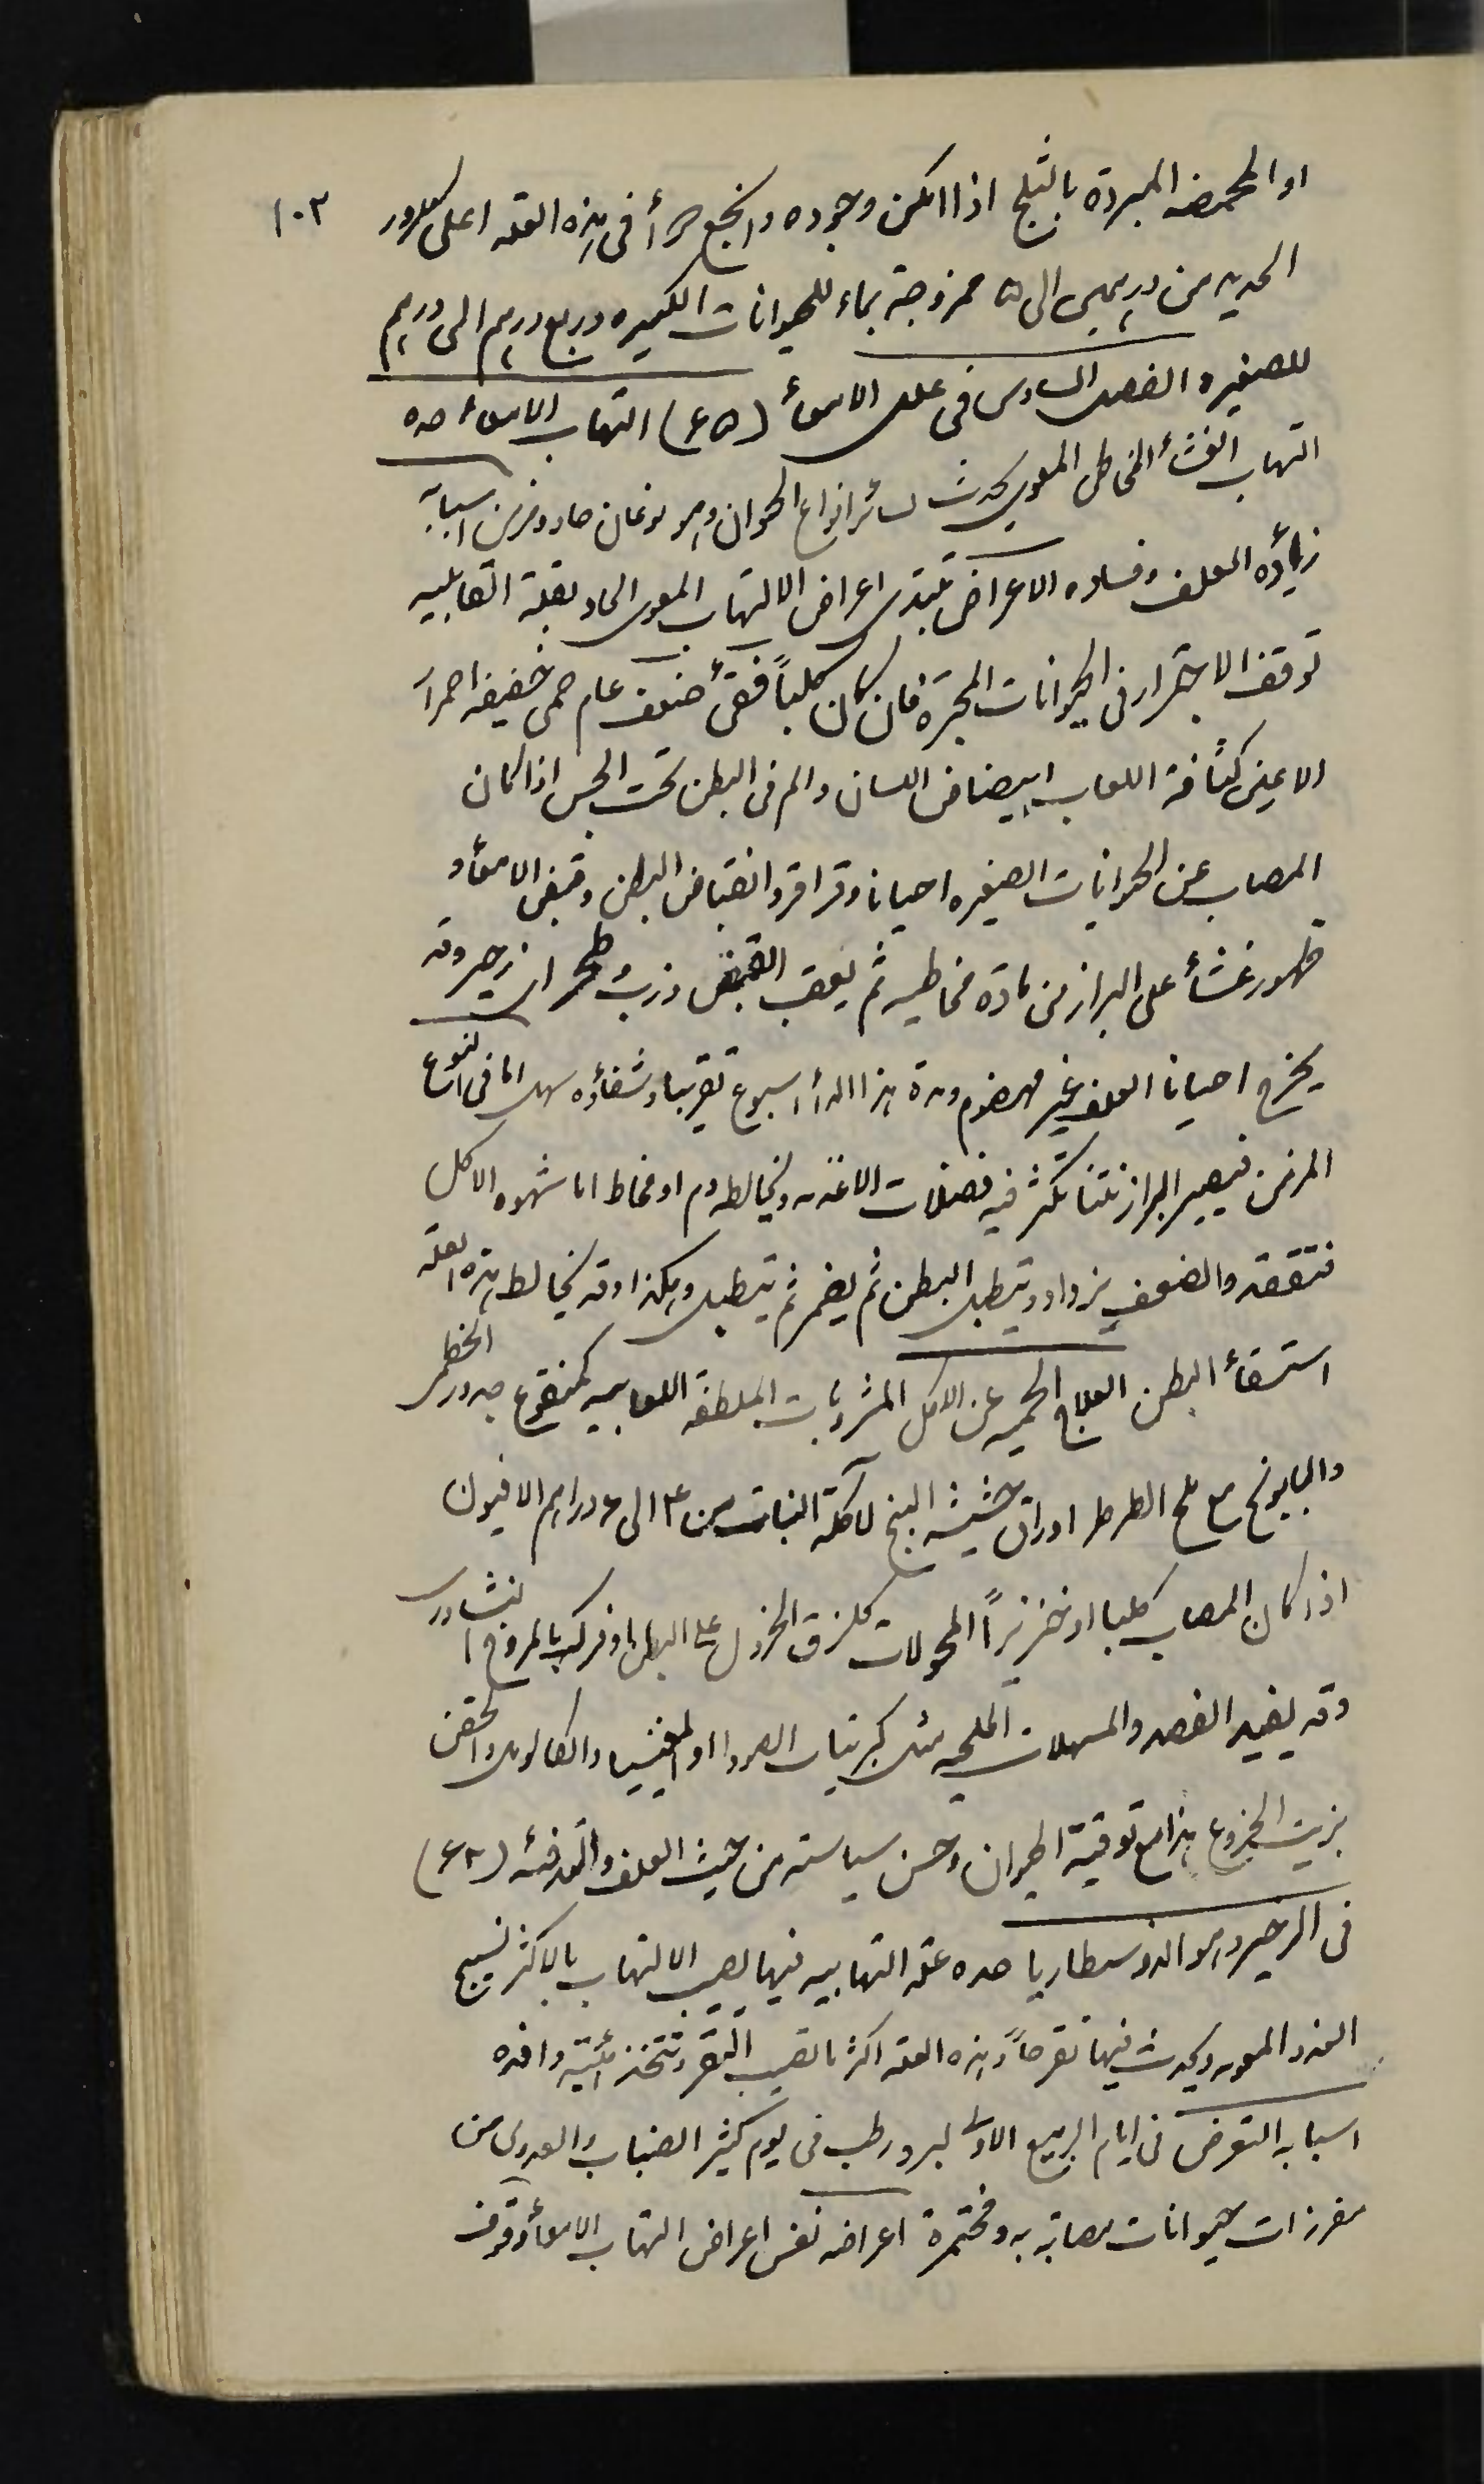 ١٠٣
او المحمضه المبردة بالثلج اذا امكن وجوده وانجع دوأ فى هذه العله اعلى كلورور
الحديد من درهمين الى ٥ ممزوجة بماء للحيوانات الكبيره وربع درهم الى درهم
للصغيره الفصل السادس فى علل الامعأ (٤٥) التهاب الامعأ حده
التهاب الغشأ المخاطى المعوي يحدث لسائر انواع الحيوان وهو نوعان حاد ومزمن اسبابه
زيادة العلف وفساده الاعراض تبتدى اعراض الالتهاب المعوى الحاد بقلة القابليه
توقف الاجترار فى الحيوانات المجترة فان كان كلباً فقئ ضعف عام حمى خفيفه احمرار
الاعين كثافة اللعاب ابيضاض اللسان والم فى البطن تحت الجس اذا كان
المصاب من الحيوانات الصغيره احيانا وقراقر وانقباض البطن وقبض الامعأ و
ظهور غشأ على البراز من مادة مخاطيه ثم يعقب القبض ذرب وطحر اى زحير وقد
يخرج احيانا العلف غير مهضوم ومدة هذا الدأ اسبوع تقريبا وشفاؤه سهل اما فى النوع
المزمن فيصير البراز نتنا تكثر فيه فضلات الاغذيه ويخالطه دم او مخاط اما شهوه الاكل
فتفقد والضعف يزداد ويتطبل البطن ثم يضمر ثم يتطبل وهكذا وقد يخالط هذه العله
استسقأ البطن العلاج الحميه عن الاكل المشروبات الملطفه اللعابيه كمنقوع جذور الخطمى
والبابونج مع ملح الطرطر اوراق حشيشه البنج لاكلة النبات من ٣ الى ٤ دراهم الافيون
اذا كان المصاب كلبا او خنزيراً المحولات كلزق الخردل على البطن او فركه بالمروخ النشادرى
وقد يفيد الفصد والمسهلات الملحيه مثل كبريتات الصودا او المغنيسيا والكالومل والحقن
بزيت الخروع هذا مع توقية الحيوان وحسن سياسته من حيث العلف والتدفئه (٤٦)
فى الزحير وهو الدوسطاريا حده علة التهابيه فيها يصيب الالتهاب بالاكثر نسيج
الغدد المعويه ويحدث فيها تقرحاً وهذه العله اكثر ما تصيب البقر وتتخذ هيئة وافده
اسبابه التعرض فى ايام الربيع الاولى لبرد رطب فى يوم كثير الضباب والعدوى من
مفرزات حيوانات مصابة به ومختمرة اعراضه نفس اعراض التهاب الامعأ وقوف